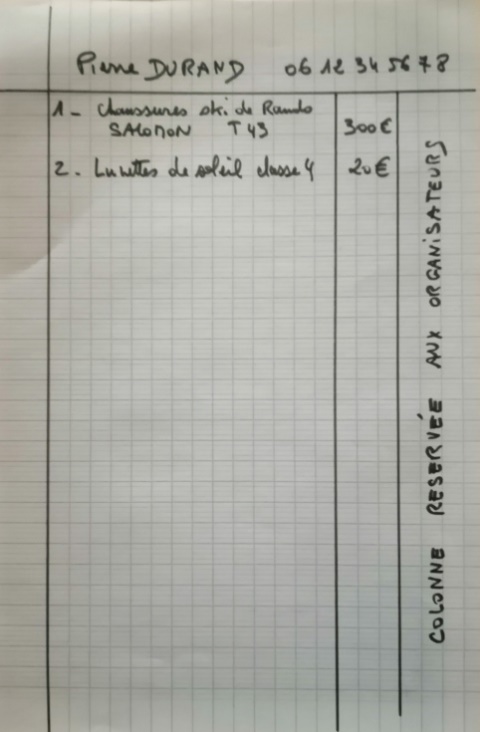 Pierre DURAND 06 12 34 56 78
1 - Chaussures ski de Rando
SALOMON T 43 300€
2. Lunettes de soleil classe 4 20€
COLONNE RESERVÉE AUX ORGANISATEURS